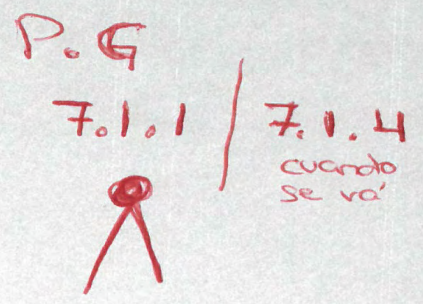 P.G
7.1.1 / 7.1.4
cuando
se vá